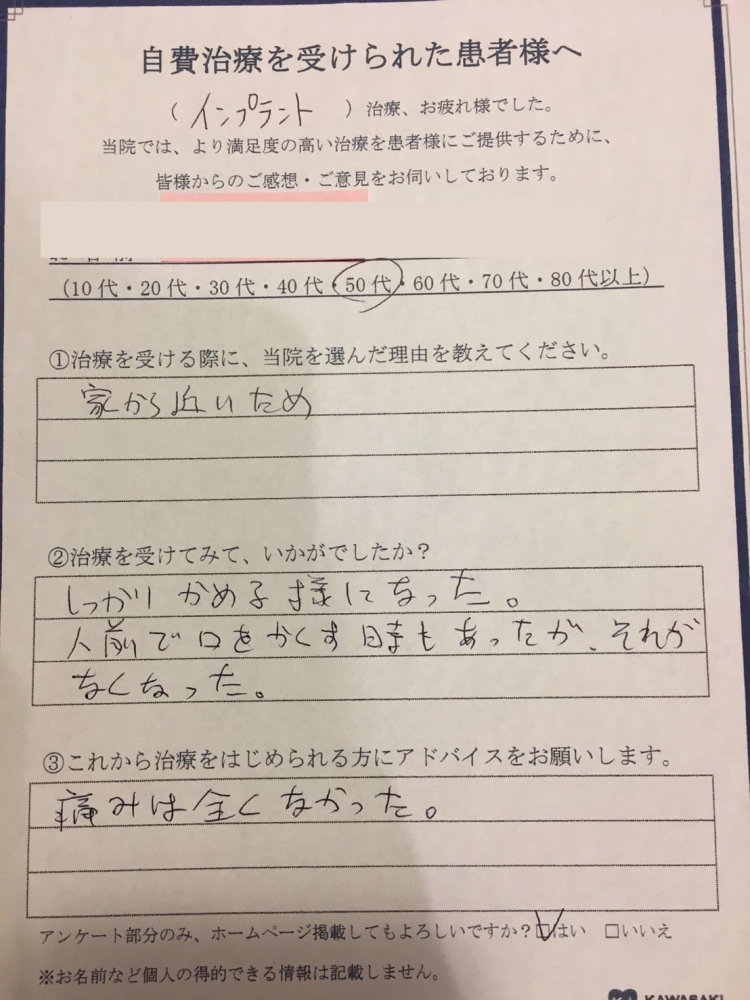 自費治療を受けられた患者様へ
（インプラント）治療、お疲れ様でした。
当院では、より満足度の高い治療を患者様にご提供するために、
皆様からのご感想・ご意見をお伺いしております。
（10代・20代・30代・40代・50代・60代・70代・80代以上）
①治療を受ける際に、当院を選んだ理由を教えてください。
家から近いため
②治療を受けてみて、いかがでしたか？
しっかりかめる様になった。
人前で口をかくす時もあったが、それが
なくなった。
③これから治療をはじめられる方にアドバイスをお願いします。
痛みは全くなかった。
アンケート部分のみ、ホームページ掲載してもよろしいですか？☑はい　□いいえ
※お名前など個人の得的できる情報は記載しません。
KAWASAKI